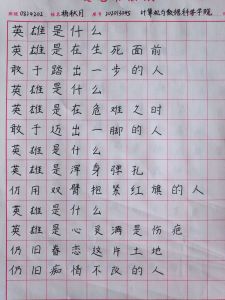 班级 0824202 姓名 杨秋月 计算机与数据科学学院
英雄是什么
英雄是在生死面前
敢于踏出一步的人
英雄是什么
英雄是在危难之时
敢于迈出一脚的人
英雄是什么
英雄是浑身弹孔
仍用双臂抱紧红旗的人
英雄是什么
英雄是心良满是伤疤
仍旧眷恋这片土地
仍旧痴情不改的人